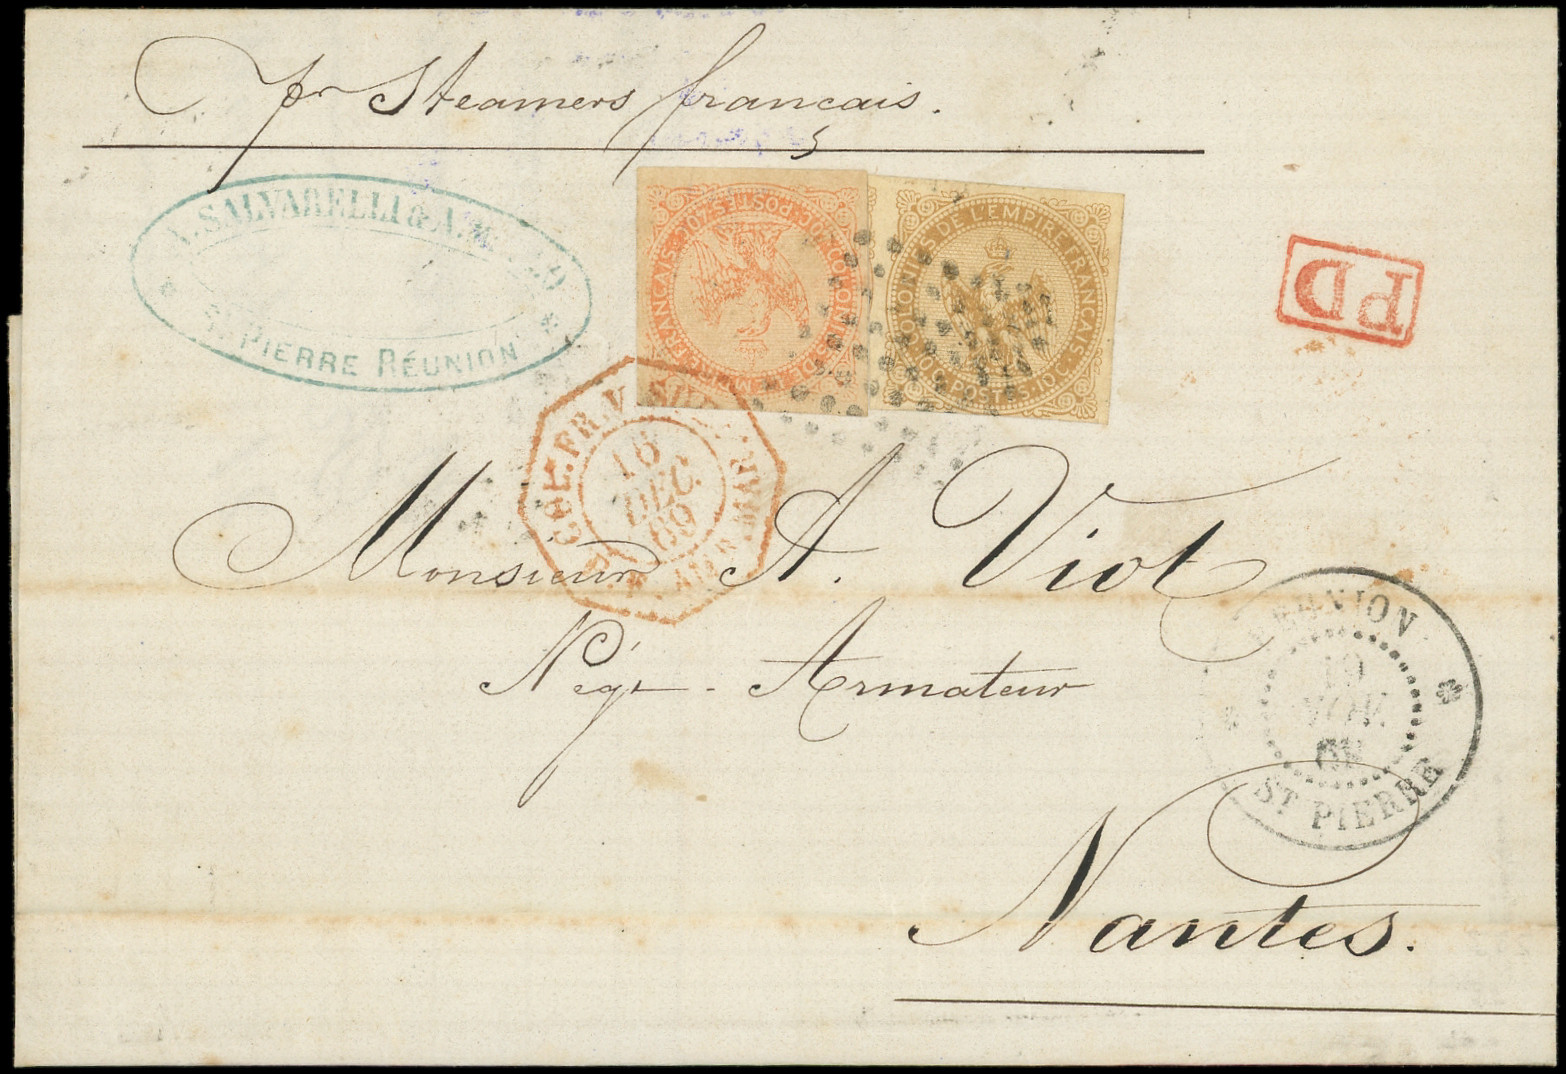 pr Steamers francais.
A. SALVARELLI & A.
St PIERRE RÉUNION
COLONIES DE L'EMPIRE FRANÇAIS · 40C · POSTES · 40C ·
COLONIES DE L'EMPIRE FRANÇAIS · 10C · POSTES · 10C ·
PD
COL. FR. V. SUEZ
MAR
16
DEC.
69
Monsieur A. Viot
Négt - Armateur
RÉUNION
19
NOV.
69
ST PIERRE
Nantes.